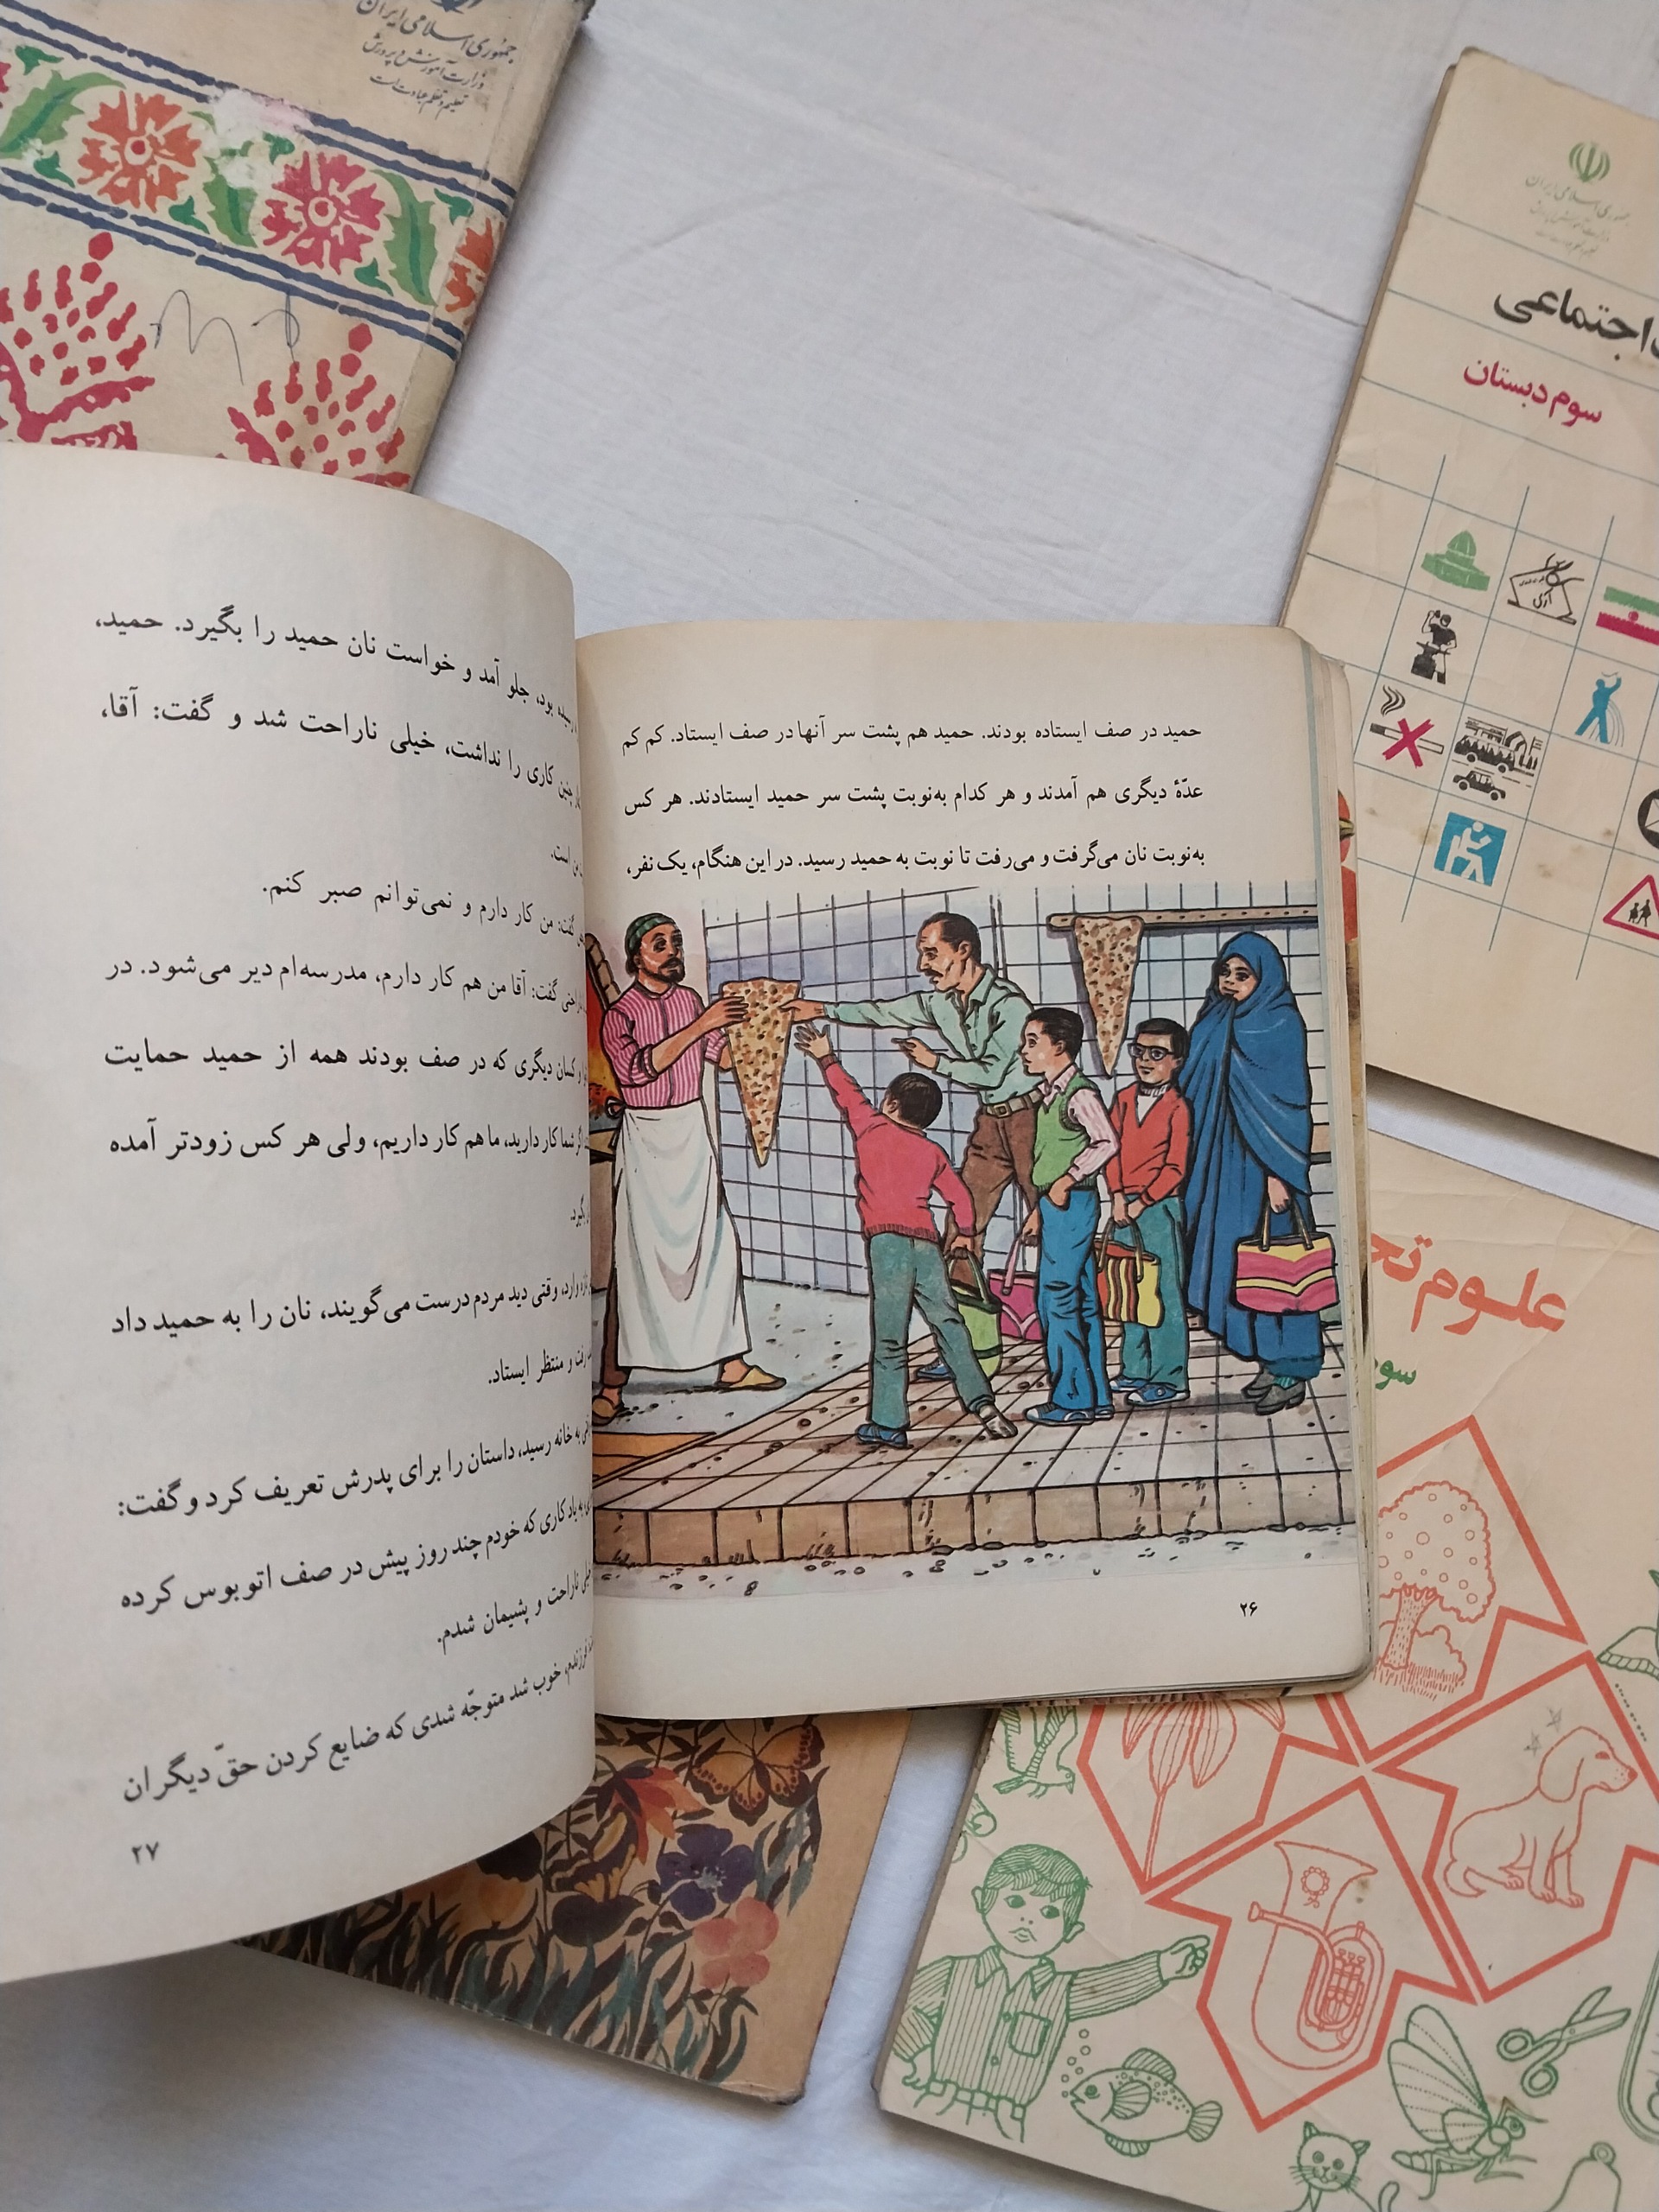 جمهوری اسلامی ایران
وزارت آموزش و پرورش
تعلیم و تعلم عبادت است
جمهوری اسلامی ایران
اجتماعی
سوم دبستان
آری
حمید در صف ایستاده بودند. حمید هم پشت سر آنها در صف ایستاد. کم کم
عدّهٔ دیگری هم آمدند و هر کدام به‌نوبت پشت سر حمید ایستادند. هر کس
به‌نوبت نان می‌گرفت و می‌رفت تا نوبت به حمید رسید. در این هنگام، یک نفر،
۲۶
رسیده بود، جلو آمد و خواست نان حمید را بگیرد. حمید،
چنین کاری را نداشت، خیلی ناراحت شد و گفت: آقا،
من است.
گفت: من کار دارم و نمی‌توانم صبر کنم.
گفت: آقا من هم کار دارم، مدرسه‌ام دیر می‌شود. در
کسان دیگری که در صف بودند همه از حمید حمایت
شما کار دارید، ما هم کار داریم، ولی هر کس زودتر آمده
بگیرد.
وارد، وقتی دید مردم درست می‌گویند، نان را به حمید داد
رفت و منتظر ایستاد.
به خانه رسید، داستان را برای پدرش تعریف کرد و گفت:
به یاد کاری که خودم چند روز پیش در صف اتوبوس کرده
ناراحت و پشیمان شدم.
فرزندم، خوب شد متوجّه شدی که ضایع کردن حقّ دیگران
۲۷
علوم